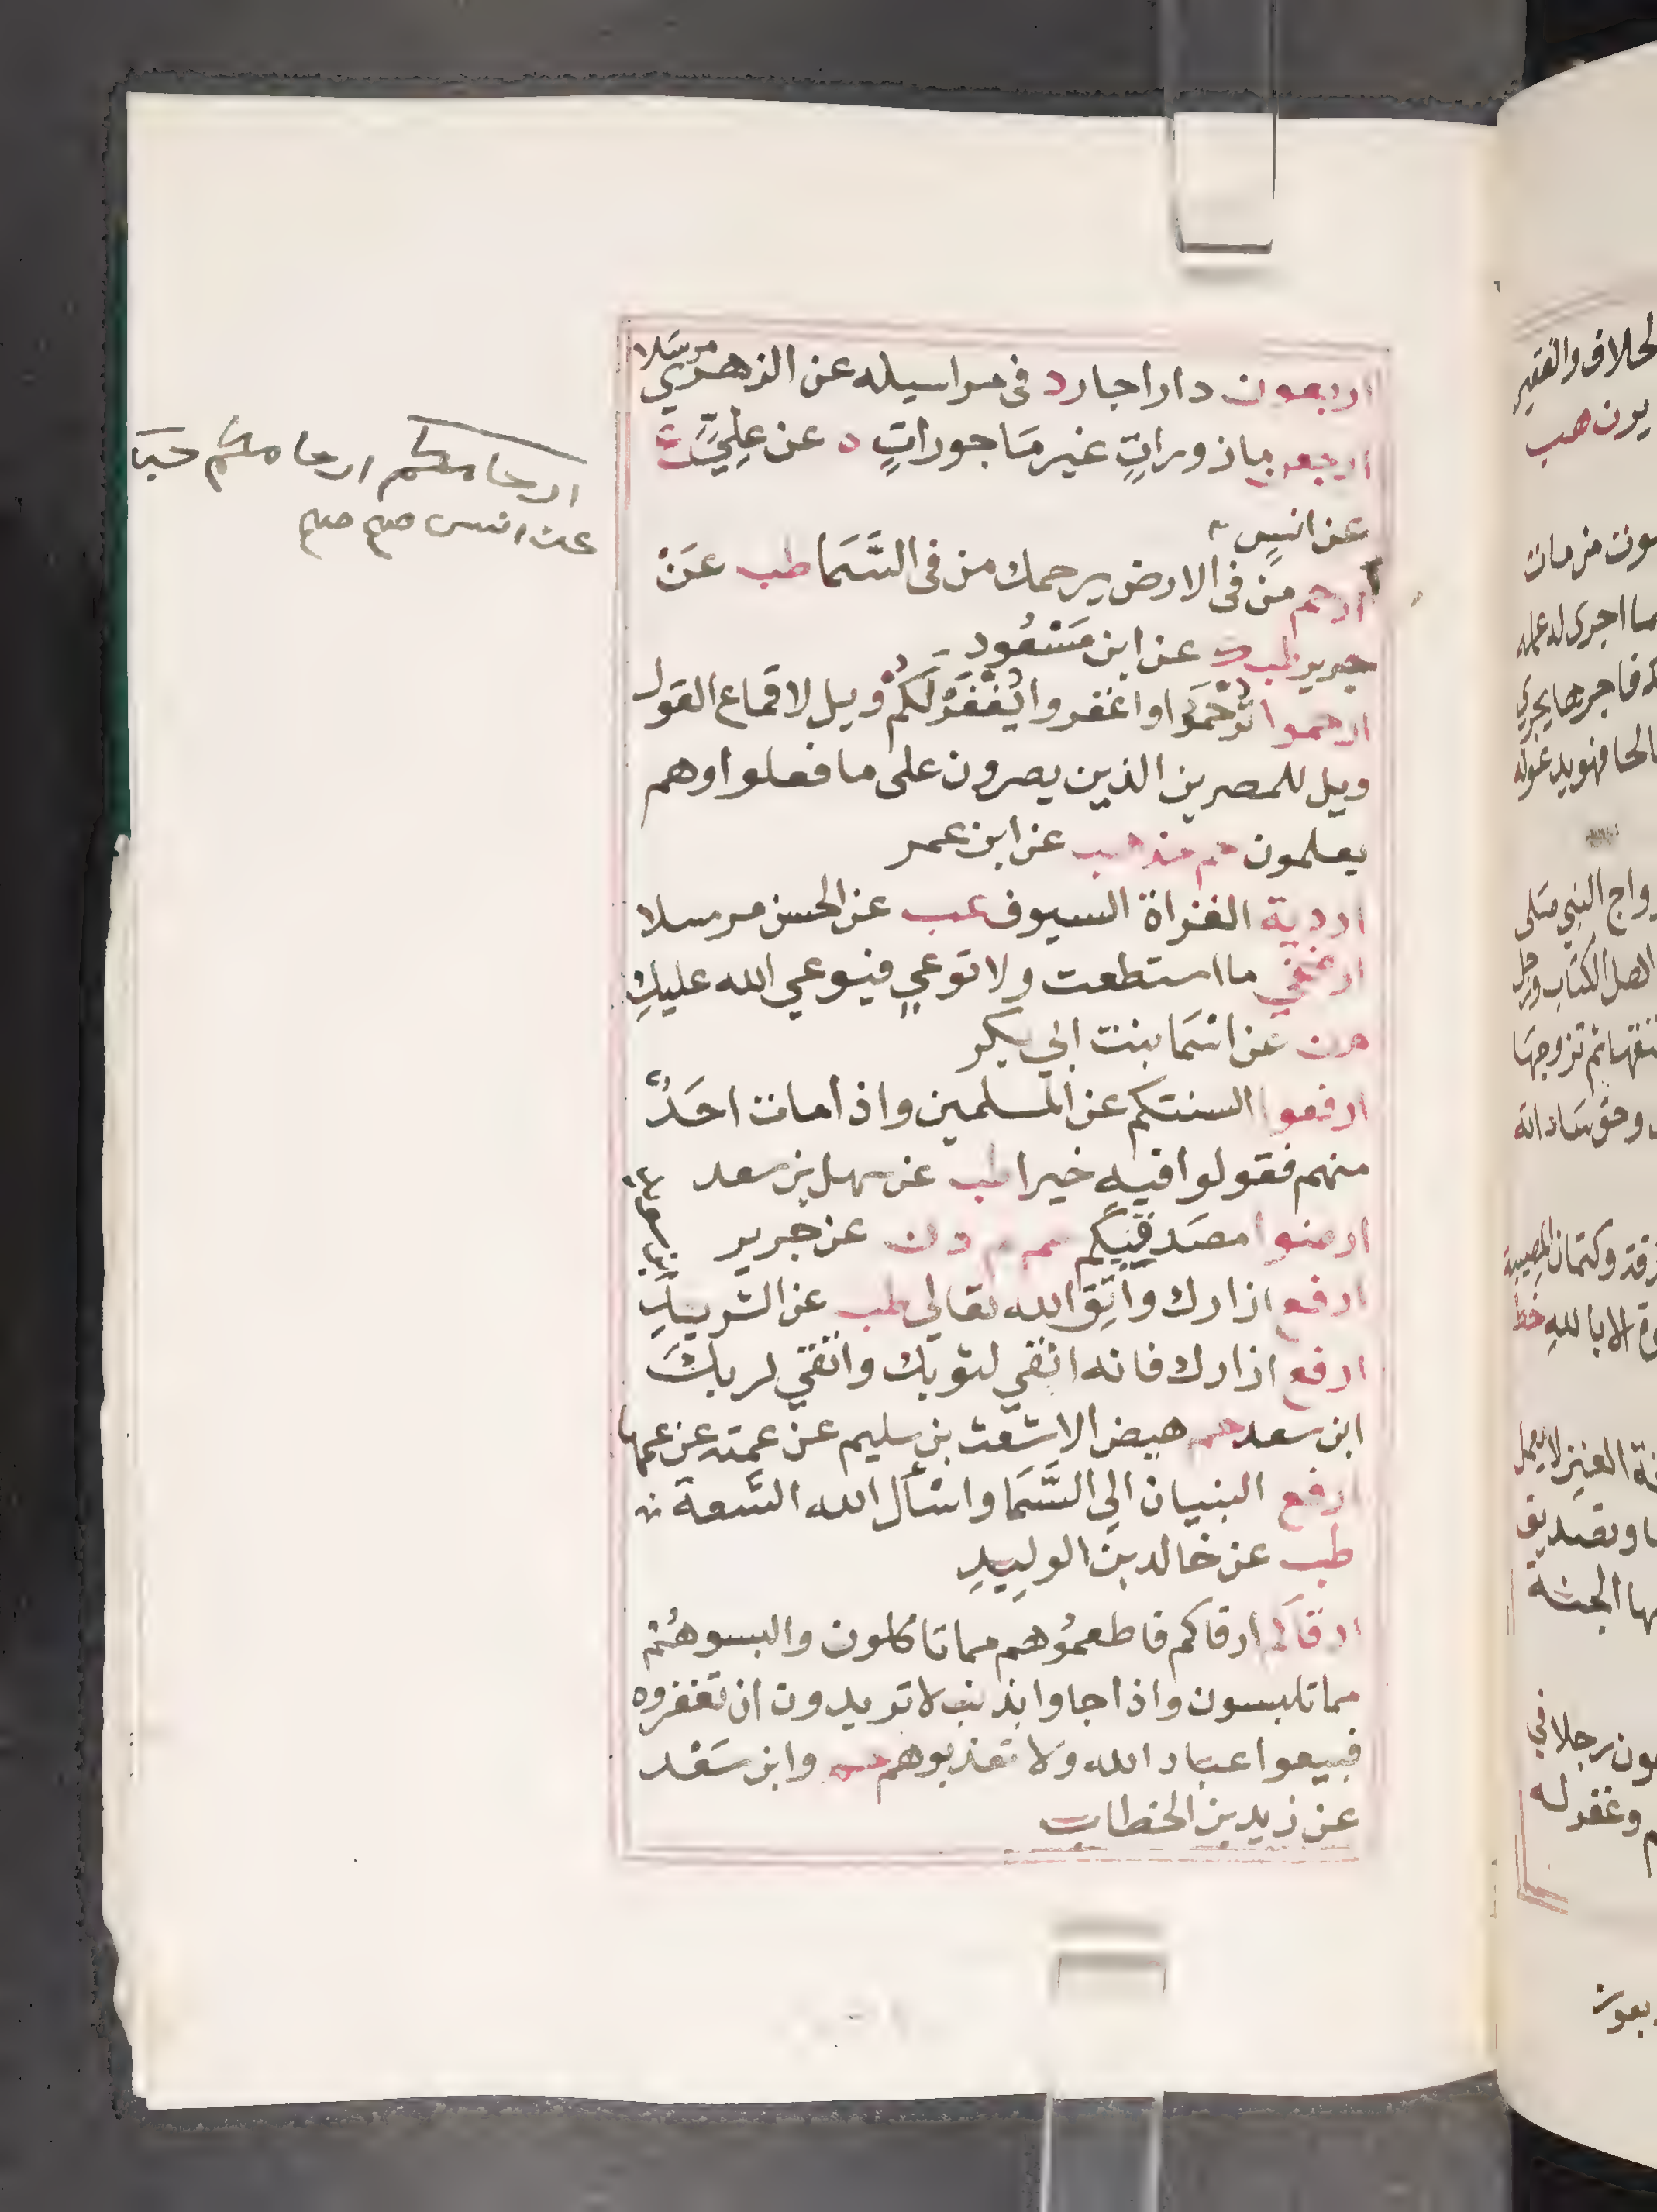 اربعون دارا جار د فى مراسيله عن الزهري مرسلا
ارجعن مازورات غير ماجورات ه عن علي ع
عن انس
ارحم من فى الارض يرحمك من فى السَّمَا طب عَنْ
جرير طب ك عن ابن مَسْعُود
ارحموا تُرْحَمُوا واغفروا يُغْفَرْ لَكُمْ ويل لاقماع القول
ويل للمصرين الذين يصرون على ما فعلوا وهم
يعلمون حم خد هب عن ابن عمر
اردية الغزاة السيوف عب عن الحسن مرسلا
ارضخي ما استطعت ولا توعي فيوعي الله عليكِ
م ن عن اسْمَا بنت ابي بكر
ارفعوا السنتكم عن المسلمين واذا مات احَدٌ
منهم فقولوا فيه خيرا طب عن سهل بن سعد
ارضوا مصَدقيكم حم م د ن عن جرير
ارفع ازارك واتق الله تعالي طب عن الشريد
ارفع ازارك فانه انقي لثوبك واتقي لربك
ابن سعد حم هب عن الاشعث بن سليم عن عمته عن عمها
ارفع البنيان الي السَّمَا واسْأل الله السَّعة
طب عن خالد بن الوليد
ارقاكم ارقاكم فاطعموهم مما تاكلون والبسوهُمْ
مما تلبسون واذا جاوا بذنب لا تريدون ان تغفروه
فبيعوا عباد الله ولا تعذبوهم حم وابن سَعْد
عن زيد بن الخطاب
ارحامكم ارحامكم حبا
عن انس صح صح